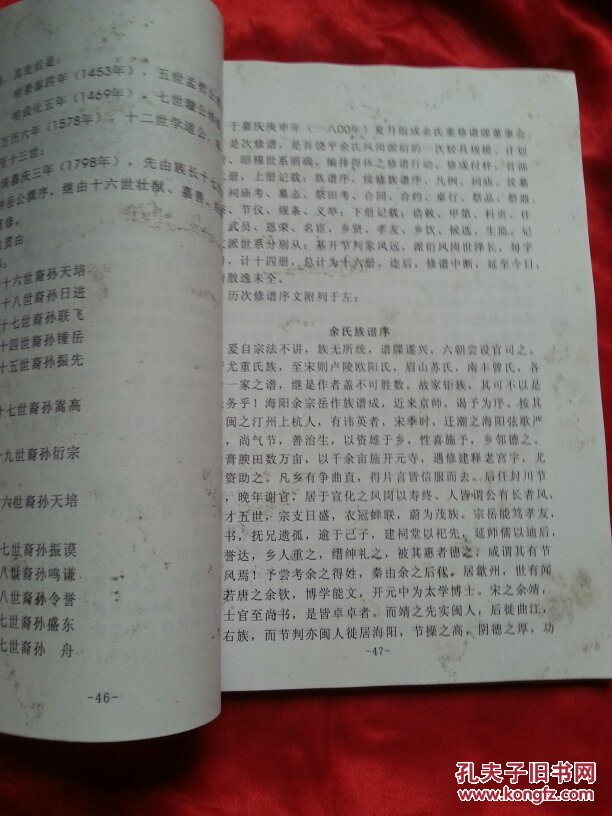 高先后是:
明景泰四年(1453年),五世孟
明成化五年(1469年),七世
万历六年(1578年),十二世学道公,
至十三世:
清嘉庆三年(1798年),先由族长十
岳公撰序,继由十六世壮猷、嘉善、
重修。
由
十六世裔孙天培
十八世裔孙日进
十七世裔孙联飞
十四世裔孙锺岳
十五世裔孙振先
十七世裔孙嵩高
十九世裔孙衍宗
六世裔孙天培
七世裔孙振谟
八世裔孙鸣谦
八世裔孙令誉
七世裔孙盛东
七世裔孙 舟
-46-
于嘉庆庚申年(一八00年)夏月组成余氏重修谱牒董事会。
是次修谱,是吾饶平余氏凤岗派衍的一次较具规模、计划
、昭穆世系明确、编排得体之修谱行动。修成付梓,首部
,上册记载:族谱序、续修族谱序、凡例、祠庙、坟墓
、祠庙考、墓志、祭田考、合同、合约、桌行、祭品、祭器
、节仪、规条、义举;下册记载:诰敕、甲第、科贡、仕
武员、恩荣、名宦、乡贤、孝友、乡饮、候选、生监。记
派世系分别从:基开节判家风远,派衍凤岗世泽长,每字
,计十四册,总计为十六册。迩后,修谱中断,延至今日,
散逸未全。
历次修谱序文附列于左:
余氏族谱序
爰自宗法不讲,族无所统,谱牒遂兴,六朝尝设官司之。
尤重氏族,至宋则卢陵欧阳氏,眉山苏氏,南丰曾氏,各
一家之谱,继是作者盖不可胜数。故家钜族,其可不以是
务乎!海阳余宗岳作族谱成,近来京师,谒予为序。按其
闽之汀州上杭人,有讳英者,宋季时,迁潮之海阳弦歌
,尚气节,善治生,以资雄于乡,性喜施予,乡邻德之。
膏腴田数万亩,以千余亩施开元寺,遇修建释老宫宇,尤
资助之。凡乡有争曲直,得片言皆信服而去。后任封川节
,晚年谢官,居于宣化之凤岗以寿终。人皆谓公有长者风,
才五世,宗支日盛,衣冠蝉联,蔚为茂族。宗岳能笃孝友,
书,抚兄遗孤,逾于己子,建祠堂以祀先,延师儒以迪后,
誉达,乡人重之,缙绅礼之,被其惠者德之,咸谓其有节
风焉!予尝考余之得姓,秦由余之后代,居歙州,世有闻
若唐之余钦,博学能文,开元中为太学博士。宋之余靖,
士官至尚书,是皆卓卓者。而靖之先实闽人,后徙曲江,
右族,而节判亦闽人徙居海阳,节操之高,阴德之厚,功
-47-
孔夫子旧书网
www.kongfz.com